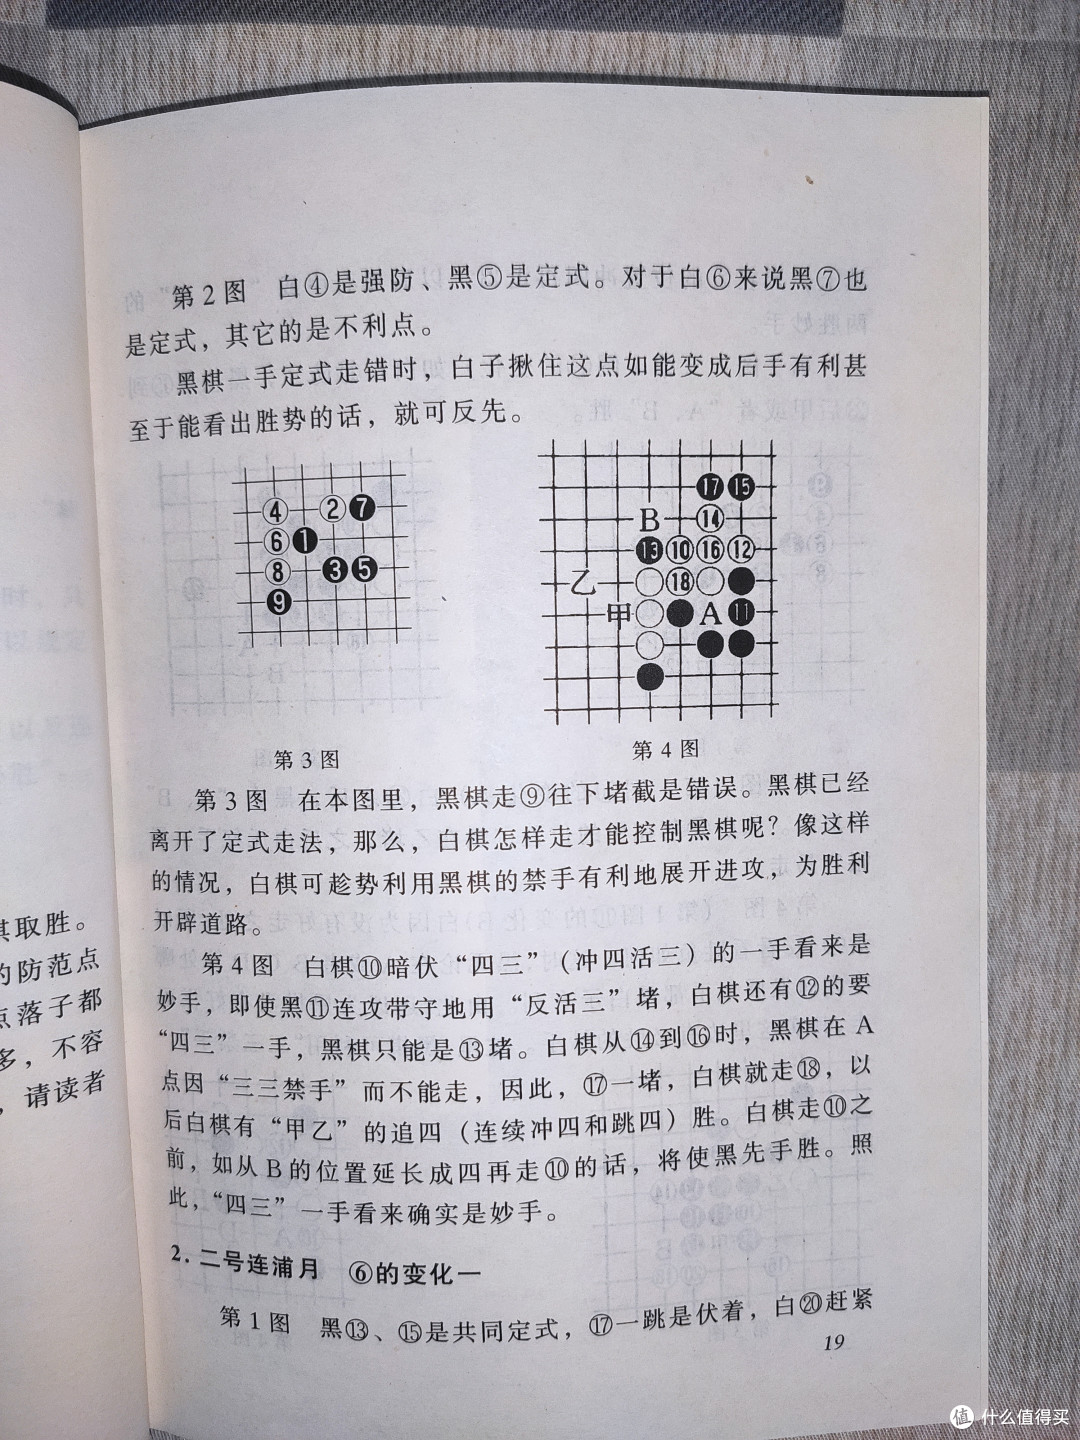 第2图　白④是强防、黑⑤是定式。对于白⑥来说黑⑦也
是定式，其它的是不利点。
黑棋一手定式走错时，白子揪住这点如能变成后手有利甚
至于能看出胜势的话，就可反先。
④ ② ❼
⑥ ❶
⑧ ❸ ❺
❾
第3图
⓱ ⓯
B ⑭
⓭ ⑩ ⑯ ⑫
乙 ⑱
甲 A ⓫
第4图
第3图　在本图里，黑棋走⑨往下堵截是错误。黑棋已经
离开了定式走法，那么，白棋怎样走才能控制黑棋呢？像这样
的情况，白棋可趁势利用黑棋的禁手有利地展开进攻，为胜利
开辟道路。
第4图　白棋⑩暗伏“四三”（冲四活三）的一手看来是
妙手，即使黑⑪连攻带守地用“反活三”堵，白棋还有⑫的要
“四三”一手，黑棋只能是⑬堵。白棋从⑭到⑯时，黑棋在A
点因“三三禁手”而不能走，因此，⑰一堵，白棋就走⑱，以
后白棋有“甲乙”的追四（连续冲四和跳四）胜。白棋走⑩之
前，如从B的位置延长成四再走⑩的话，将使黑先手胜。照
此，“四三”一手看来确实是妙手。
2. 二号连浦月　⑥的变化一
第1图　黑⑬、⑮是共同定式，⑰一跳是伏着，白⑳赶紧
19
棋取胜。
的防范点
点落子都
多，不容
，请读者
值 什么值得买